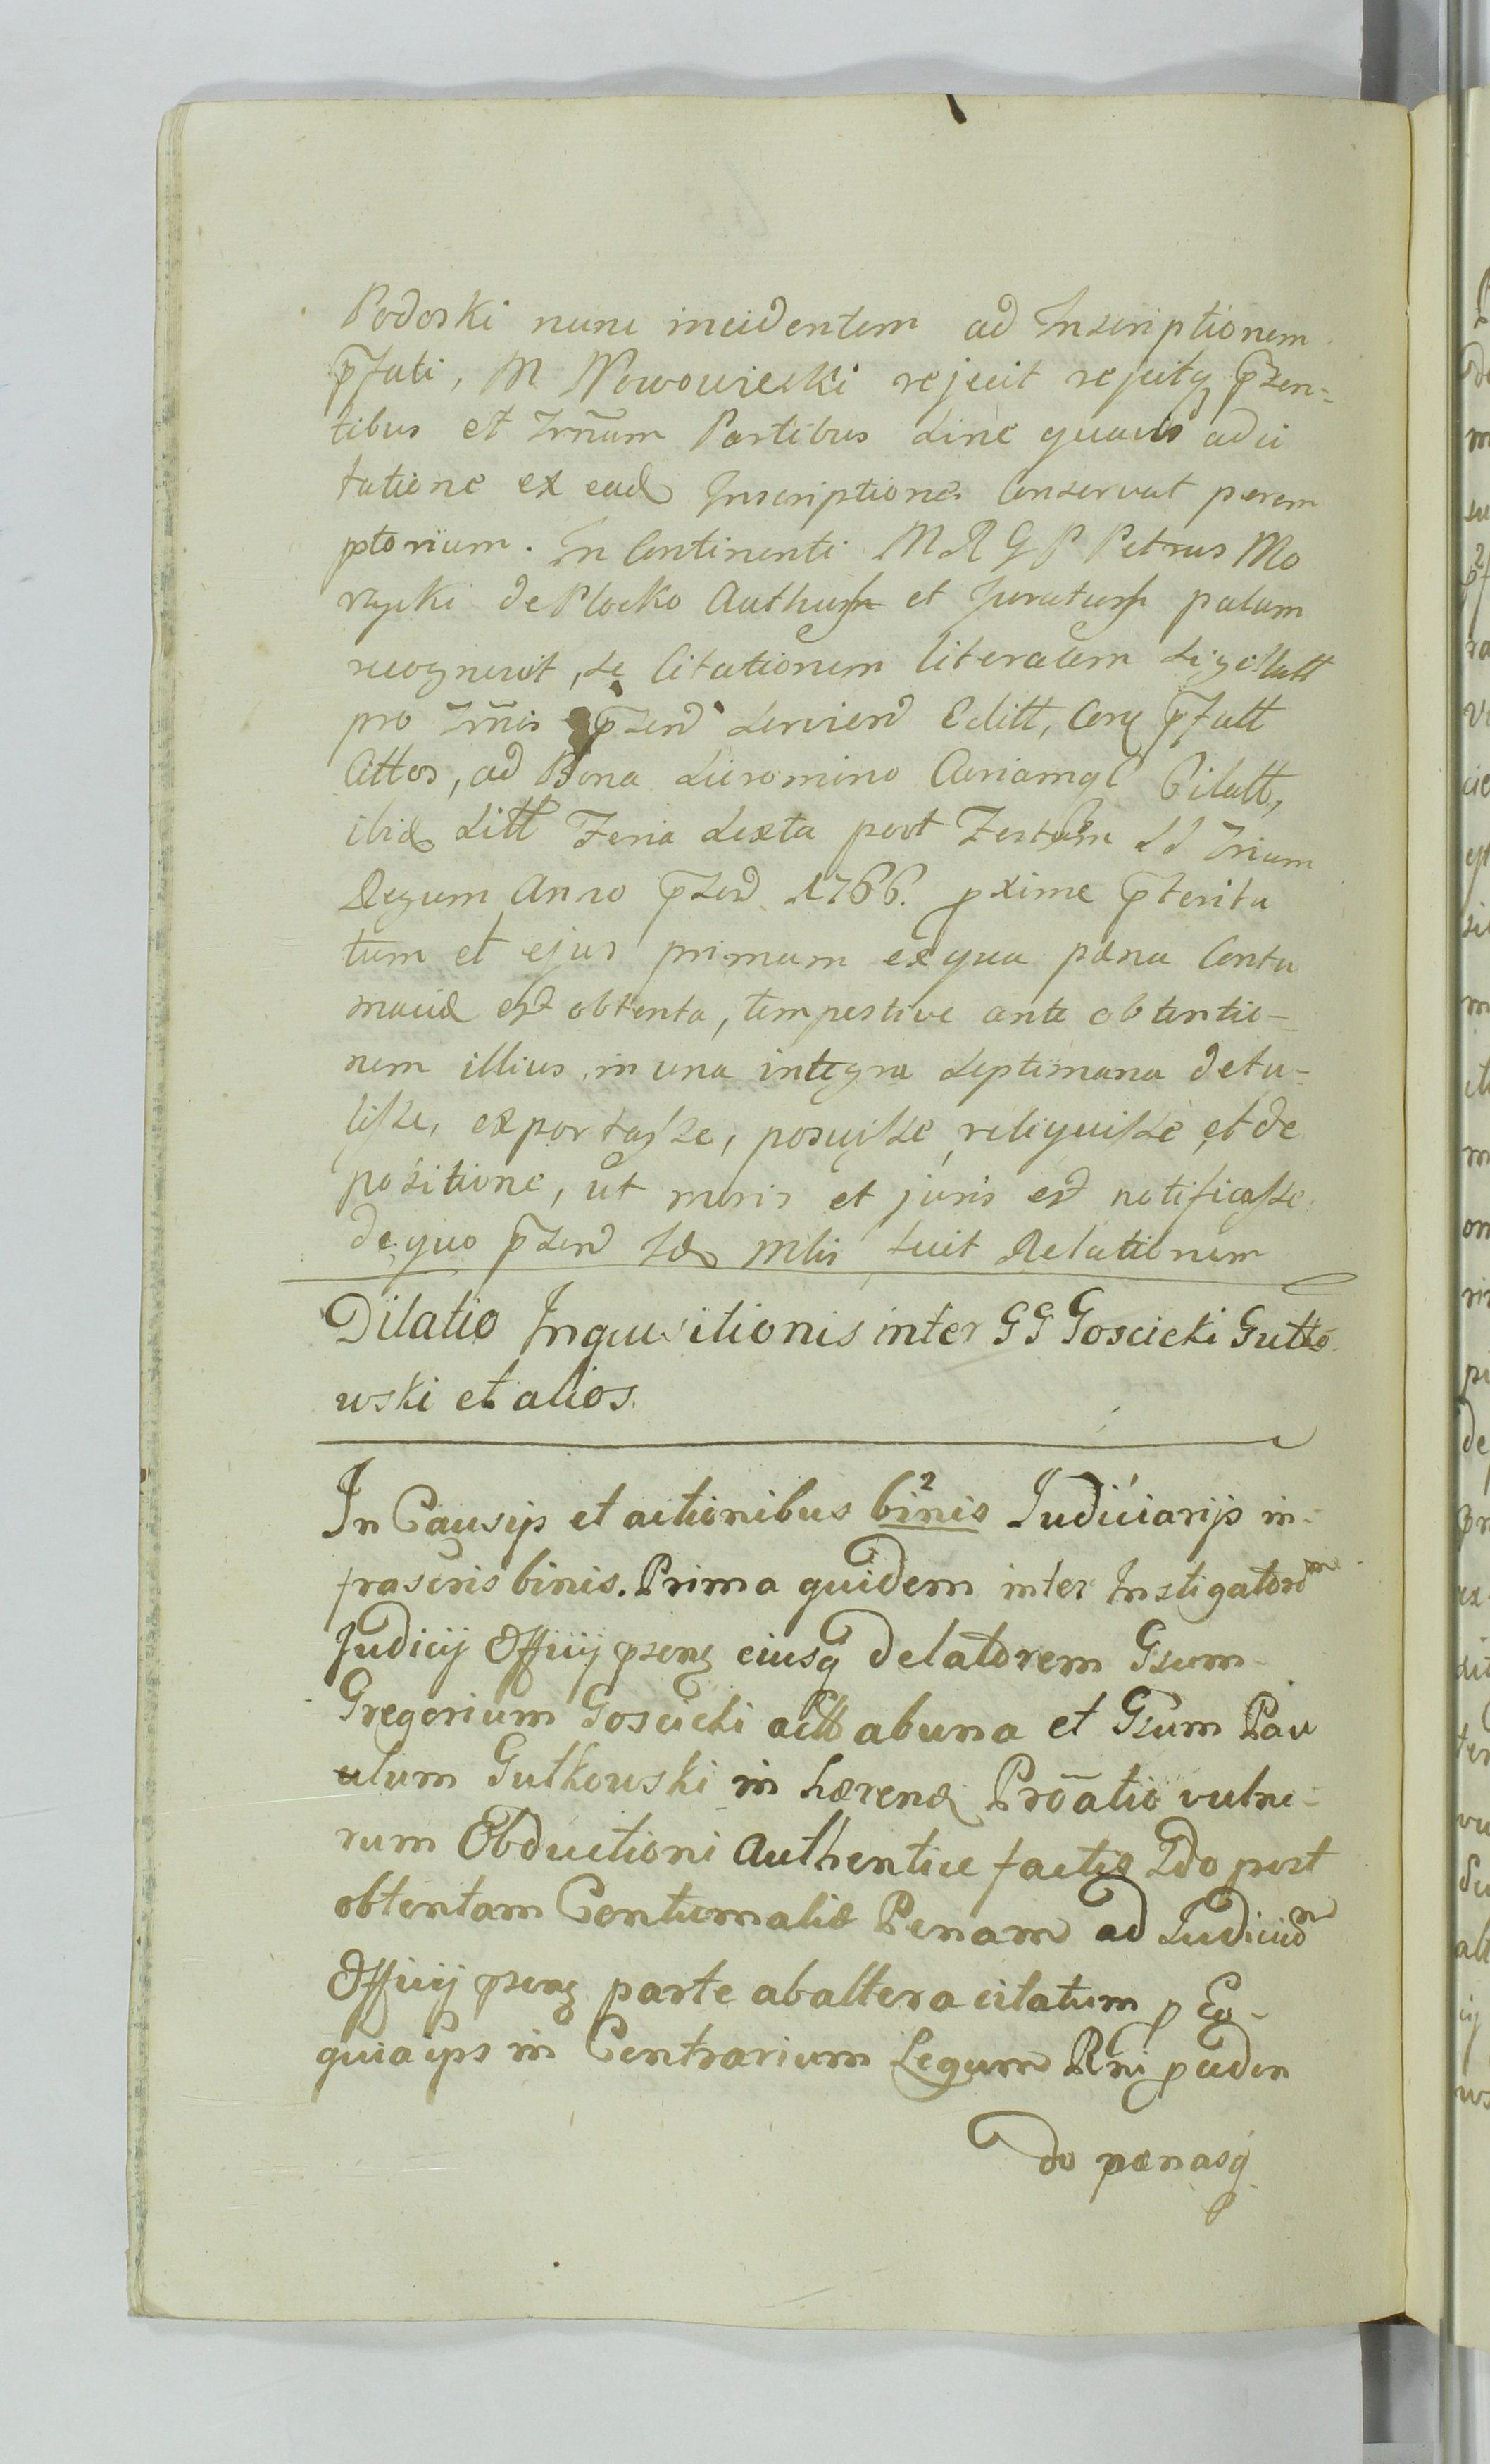 Podoski nunc incidentem ad Inscriptionem
p̄fati, M Nowowieski rejecit rejcitq p̄sen=
tibus et Trm̄um Partibus sine quavis adci
tatione ex ead Inscriptione Conservat perem
ptorium. In Continenti M R G P Petrus Mo
rzycki de Plocko Authum et Juratum palam
recognovit, se Citationem literalem sigillatt
pro Trm̄is p̄send serviend Editt, Cerq p̄fatt
Cittos, ad Bona
ibid Sitt Feria Sexta post Festum SS Trium
Regum Anno p̄send 1766. pxime p̄terita
tum et ejus primum ex qua pæna Contu
maciæ est obtenta, tempestive ante obtentio=
nem illius, in una integra Septimana detu=
lisse, exportasse, posuisse, reliquisse, et de
positione, ut moris et juris est notificasse
de quo p̄send Jd Mlis fecit Relationem
Dilatio Inquisitionis inter GG Goscicki Gutko
wski et alios.
In Causijs et actionibus binis 2 Judiciarijs in=
frascris binis. Prima quidem inter Instigatorem
Judicij Officij psenz eiusq delatorem Gsum
Gregorium Goscicki actt ab una et Gsum Pau
ulum Gutkowski in hærend Prōatio vulne=
rum Obductioni Authentice factis Ido post
obtentam Contumatiæ Penam ad Judicium
Officij psenz parte ab altera citatum p Eo=
quia ips in Contrarium Legum Rni p
do pænasq